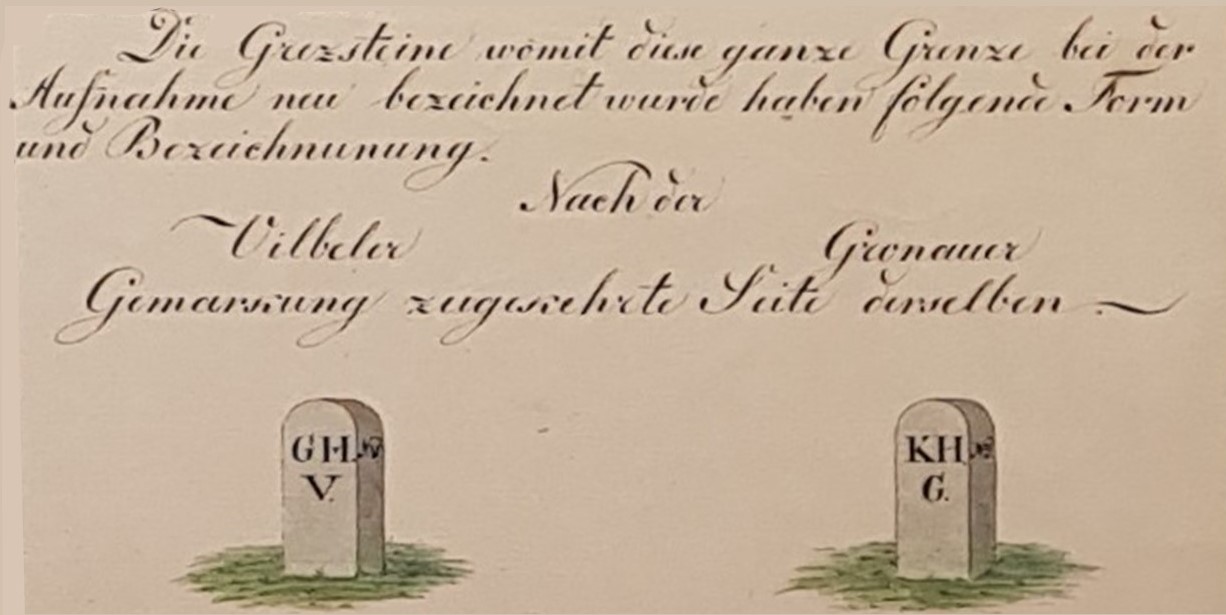 Die Grezsteine womit diese ganze Grenze bei der
Aufnahme neu bezeichnet wurde haben folgende Form
und Bezeichnunung.
Nach der
Vilbeler Gronauer
Gemarkung zugekehrte Seite derselben.
GH. No
V.
KH. No
G.